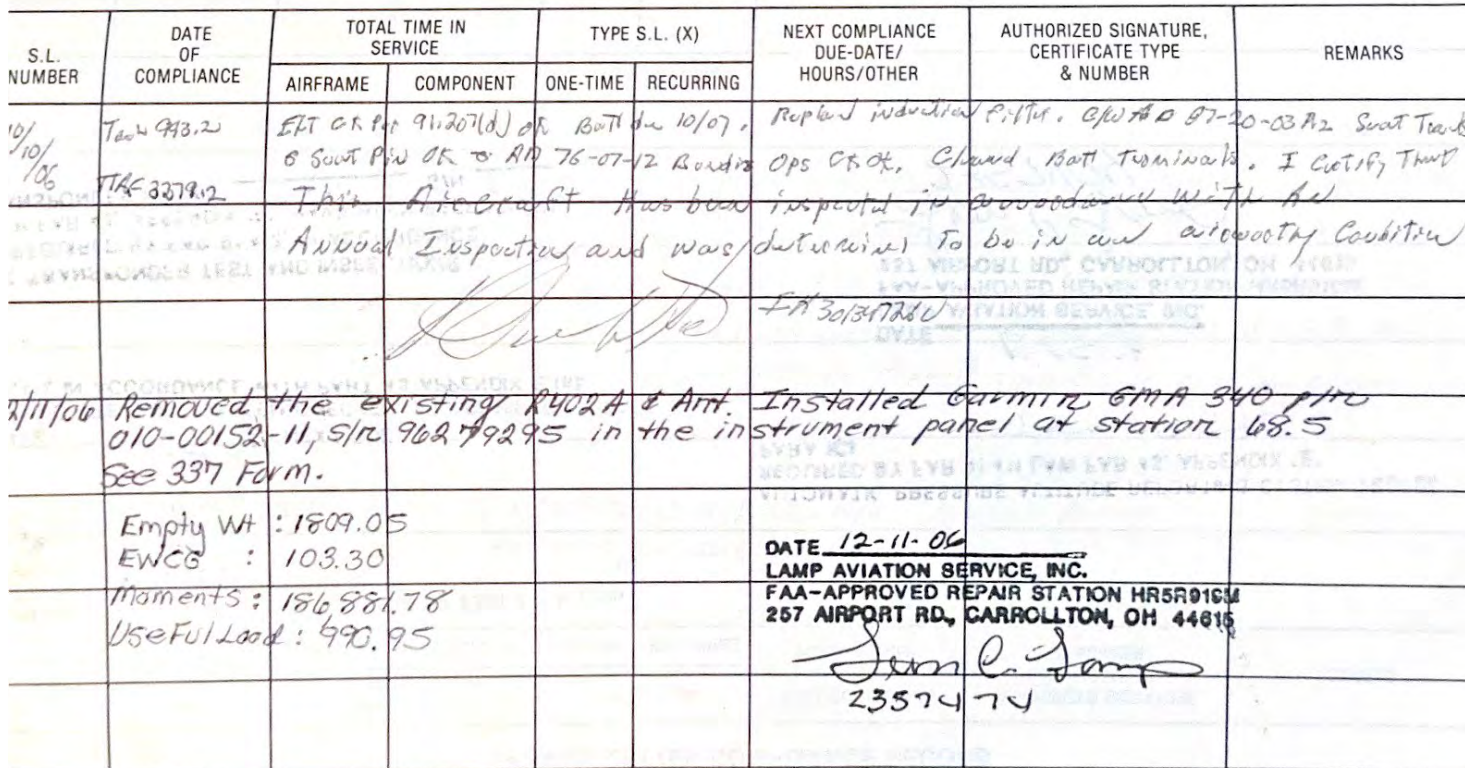 S.L. NUMBER
DATE OF COMPLIANCE
TOTAL TIME IN SERVICE
AIRFRAME
COMPONENT
TYPE S.L. (X)
ONE-TIME
RECURRING
NEXT COMPLIANCE DUE-DATE/ HOURS/OTHER
AUTHORIZED SIGNATURE, CERTIFICATE TYPE & NUMBER
REMARKS
10/10/06 Tach 943.2 ELT CK Per 91.207(d) OK Batt due 10/07. induction filter. C/W AD 87-20-03 R2 Seat
Seat OK AD 76-07-12 Ops CK OK. Batt Terminals. I Certify That
TTAF 3379.2 This Aircraft Has been inspected in accordance with An
Annual Inspection and was determined To be in an airworthy Condition
2/11/06 Removed the existing R402A & Ant. Installed Garmin GMA 340 p/n
010-00152-11, s/n 96279295 in the instrument panel at station 68.5
See 337 Form.
Empty Wt : 1809.05
EWCG : 103.30
Moments : 186,881.78
UseFul Load : 990.95
DATE 12-11-06
LAMP AVIATION SERVICE, INC.
FAA-APPROVED REPAIR STATION HR5R916M
257 AIRPORT RD., CARROLLTON, OH 44615
2357474